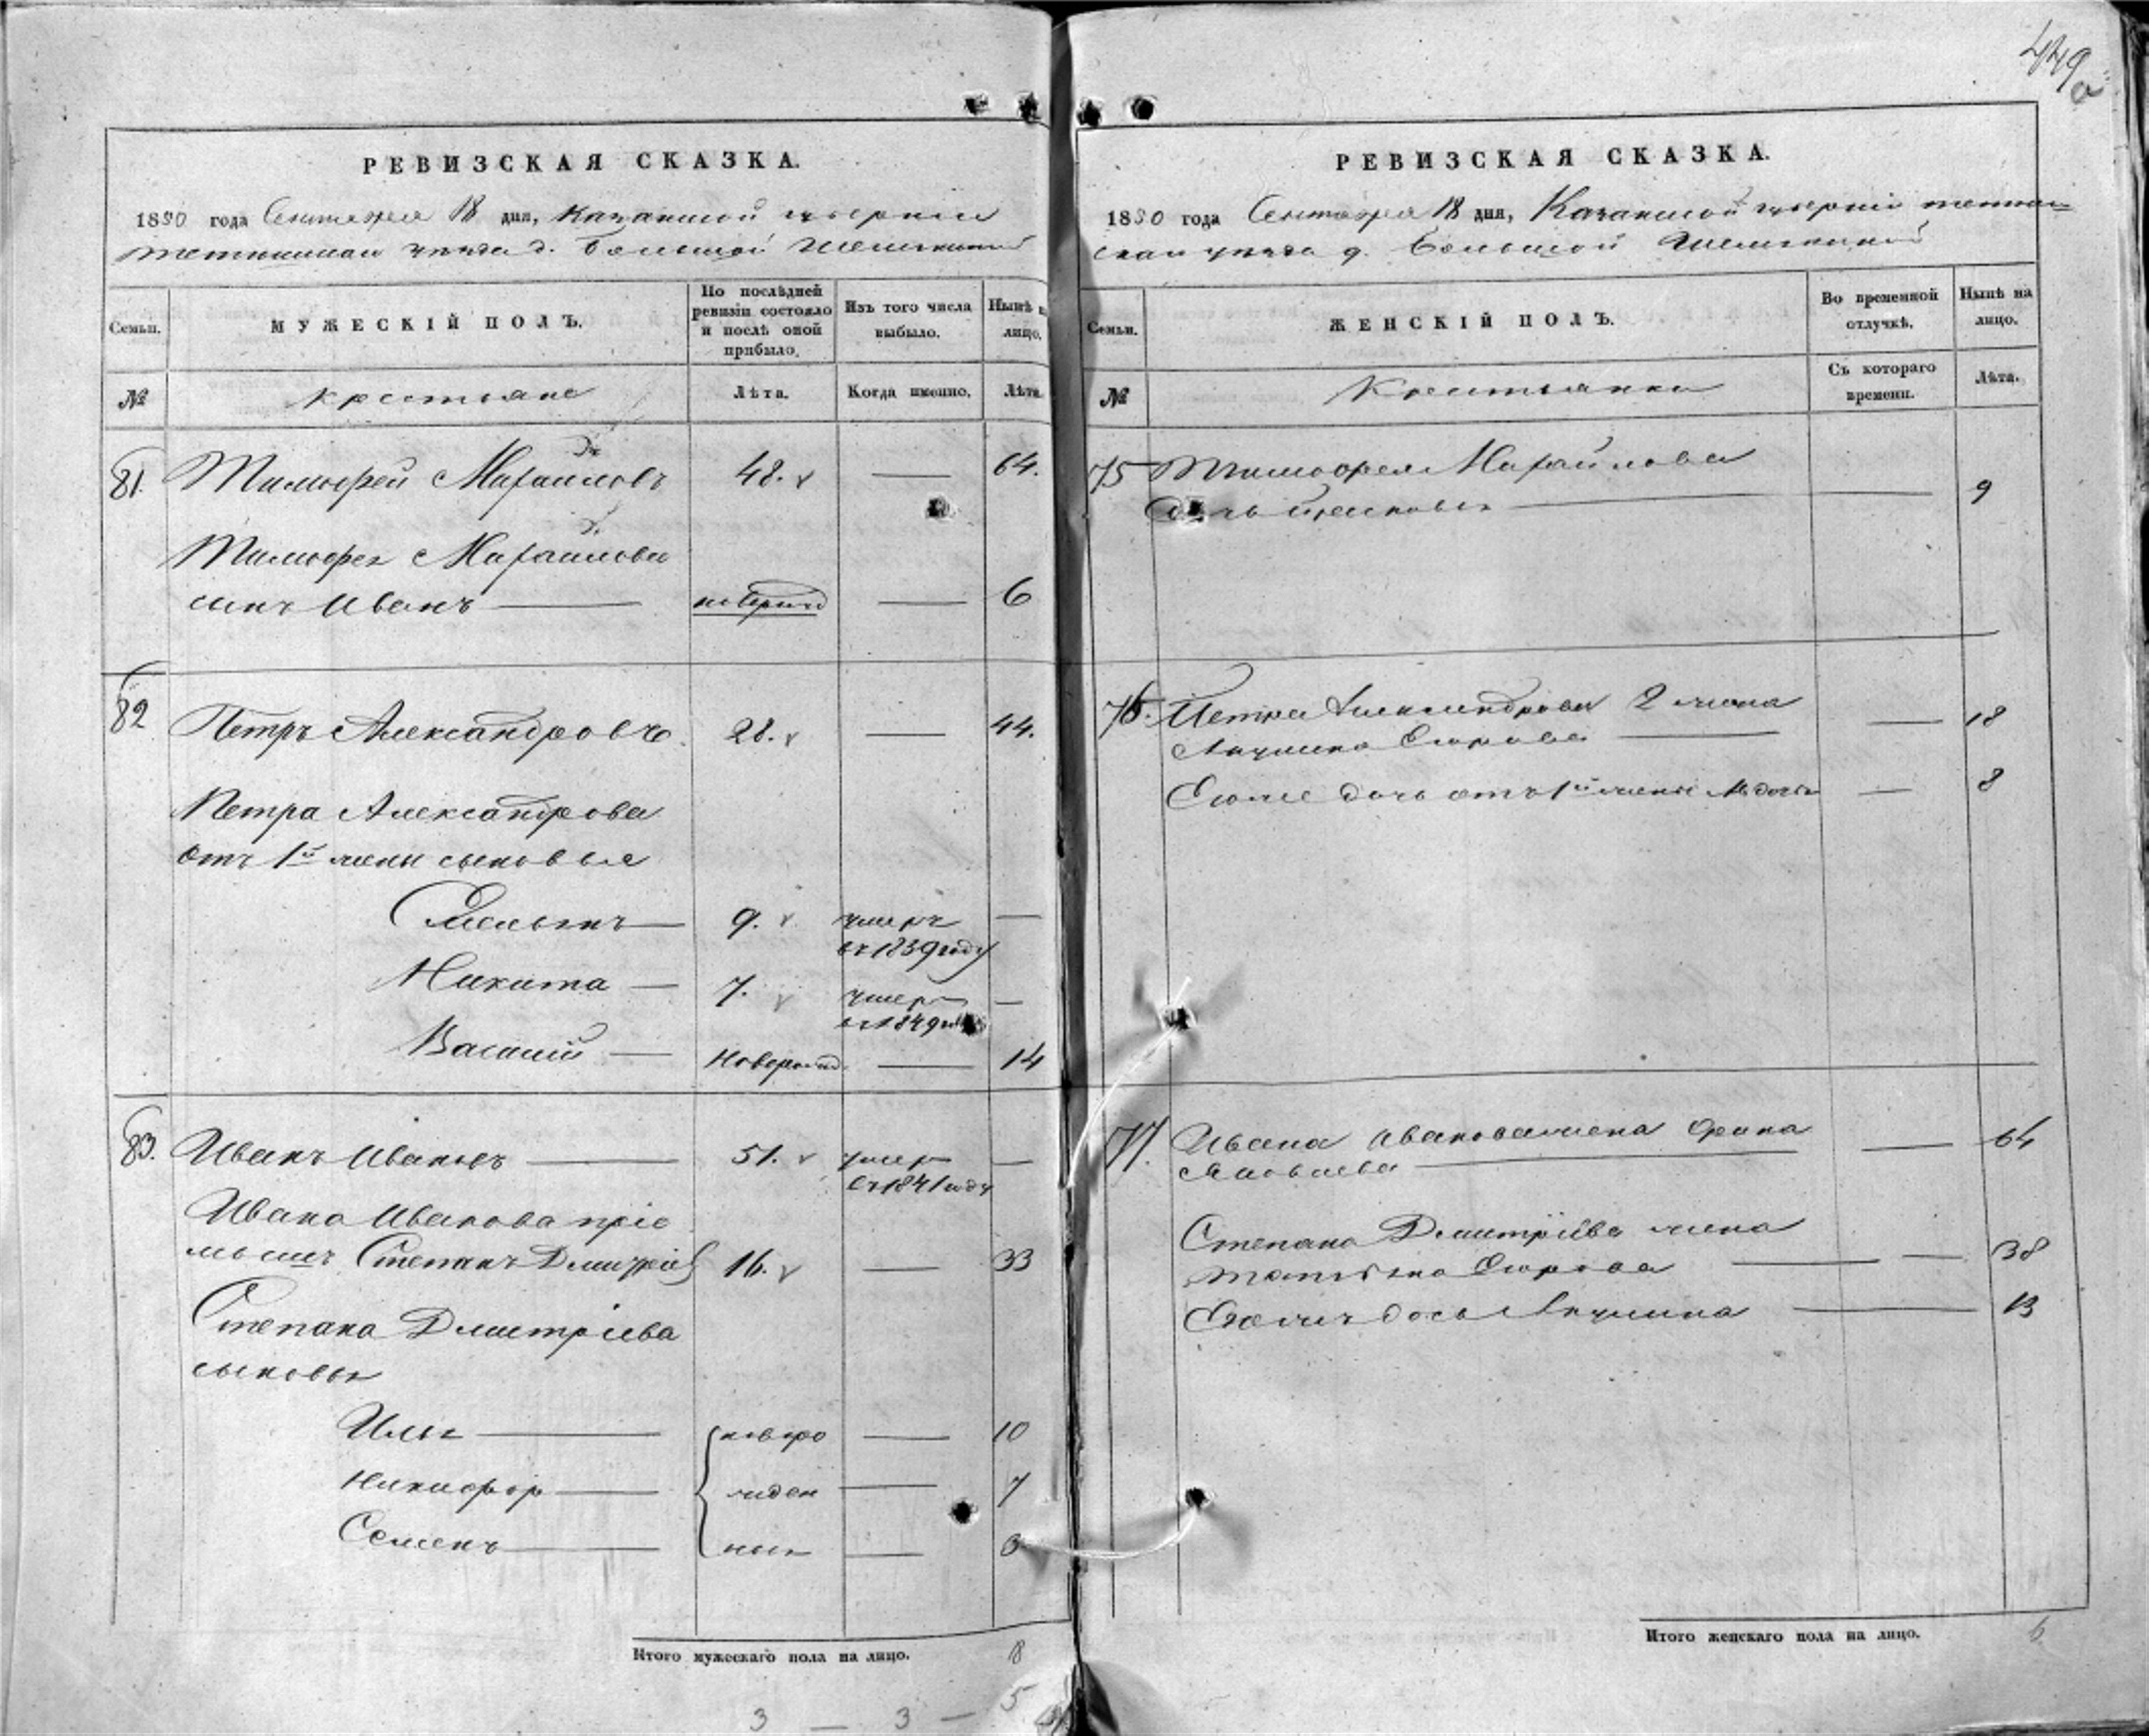 449
а
РЕВИЗСКАЯ СКАЗКА.
1850 года Сентября 18 дня, Казанской губернии
уезда д. Большой
Семьи.
МУЖЕСКІЙ ПОЛЪ.
По послѣдней ревизіи состояло и послѣ оной прибыло.
Изъ того числа выбыло.
Нынѣ на лицо.
№
Крестьяне
Лѣта.
Когда именно.
Лѣта.
81. Тимофей Михайловъ 48. — 64.
Тимофея Михайлова
сынъ Иванъ — — 6
82 Петръ Александровъ 28. — 44.
Петра Александрова
отъ 1й жены сыновья
9. умеръ —
въ 1839 году
Никита — 7. умеръ —
въ 1849
Василій — новорожд — 14
83. Иванъ Ивановъ — 51. умер —
въ 1841 году
Ивана Иванова пріе
мышъ Степанъ Дмитріев 16. — 33
Степана Дмитріева
сыновья
Илья — новоро — 10
Никифор — жден — 7
Семенъ — ныя — 3
Итого мужескаго пола на лицо. 8
3 — 3 — 5
РЕВИЗСКАЯ СКАЗКА.
1850 года Сентября 18 дня, Казанской губерніи
ская уезда д. Большой
Семьи.
ЖЕНСКІЙ ПОЛЪ.
Во временной отлучкѣ.
Нынѣ на лицо.
№
Крестьянки
Съ котораго времени.
Лѣта.
75 Тимофея Михайлова
дочь — 9
76. Петра Александрова 2 жена
Акулина — — 18
Егоже дочь отъ 1й жены — 8
77. Ивана Иванова жена
— — 64
Степана Дмитріева жена
Татьяна — — 38
Егожъ дочь Акулина — 13
Итого женскаго пола на лицо. 6